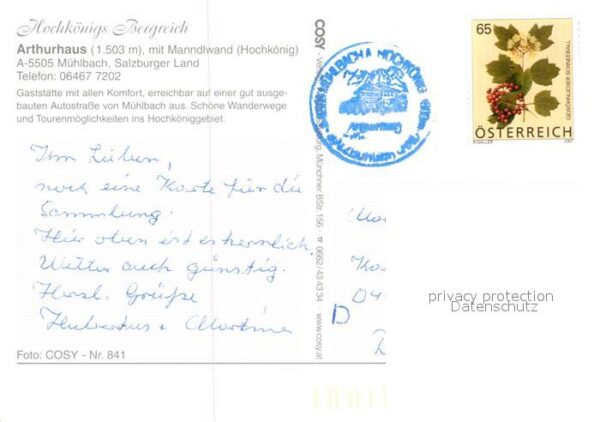 Hochkönigs Bergreich
Arthurhaus (1.503 m), mit Manndlwand (Hochkönig)
A-5505 Mühlbach, Salzburger Land
Telefon: 06467 7202
Gaststätte mit allen Komfort, erreichbar auf einer gut ausge-
bauten Autostraße von Mühlbach aus. Schöne Wanderwege
und Tourenmöglichkeiten ins Hochköniggebiet.
Ihr Lieben,
noch eine Karte für die
Sammlung.
Hier oben ist es herrlich,
Wetter auch günstig.
Herzl. Grüße
Hubertus + Martina
Foto: COSY - Nr. 841
COSY
Münchner BStr. 156
0662/43 43 34
www.cosy.at
MÜHLBACH A HOCHKÖNIG
Arthurhaus
65
GEWÖHNLICHER SCHNEEBALL
ÖSTERREICH
2007
D
privacy protection
Datenschutz